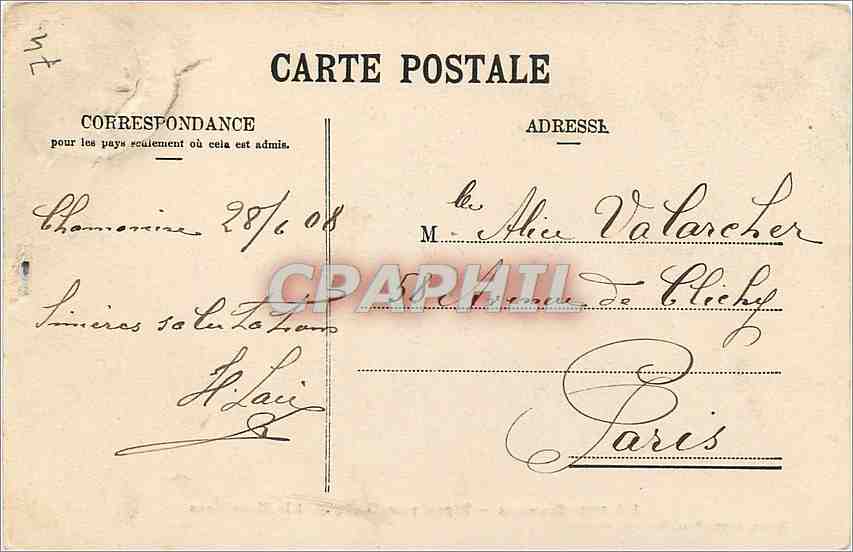 CARTE POSTALE
CORRESPONDANCE
pour les pays seulement où cela est admis.
ADRESSE
28/6 08
Sincères salutations
H.
Mlle Alice Valarcher
58 Avenue de Clichy
Paris
CPAPHIL